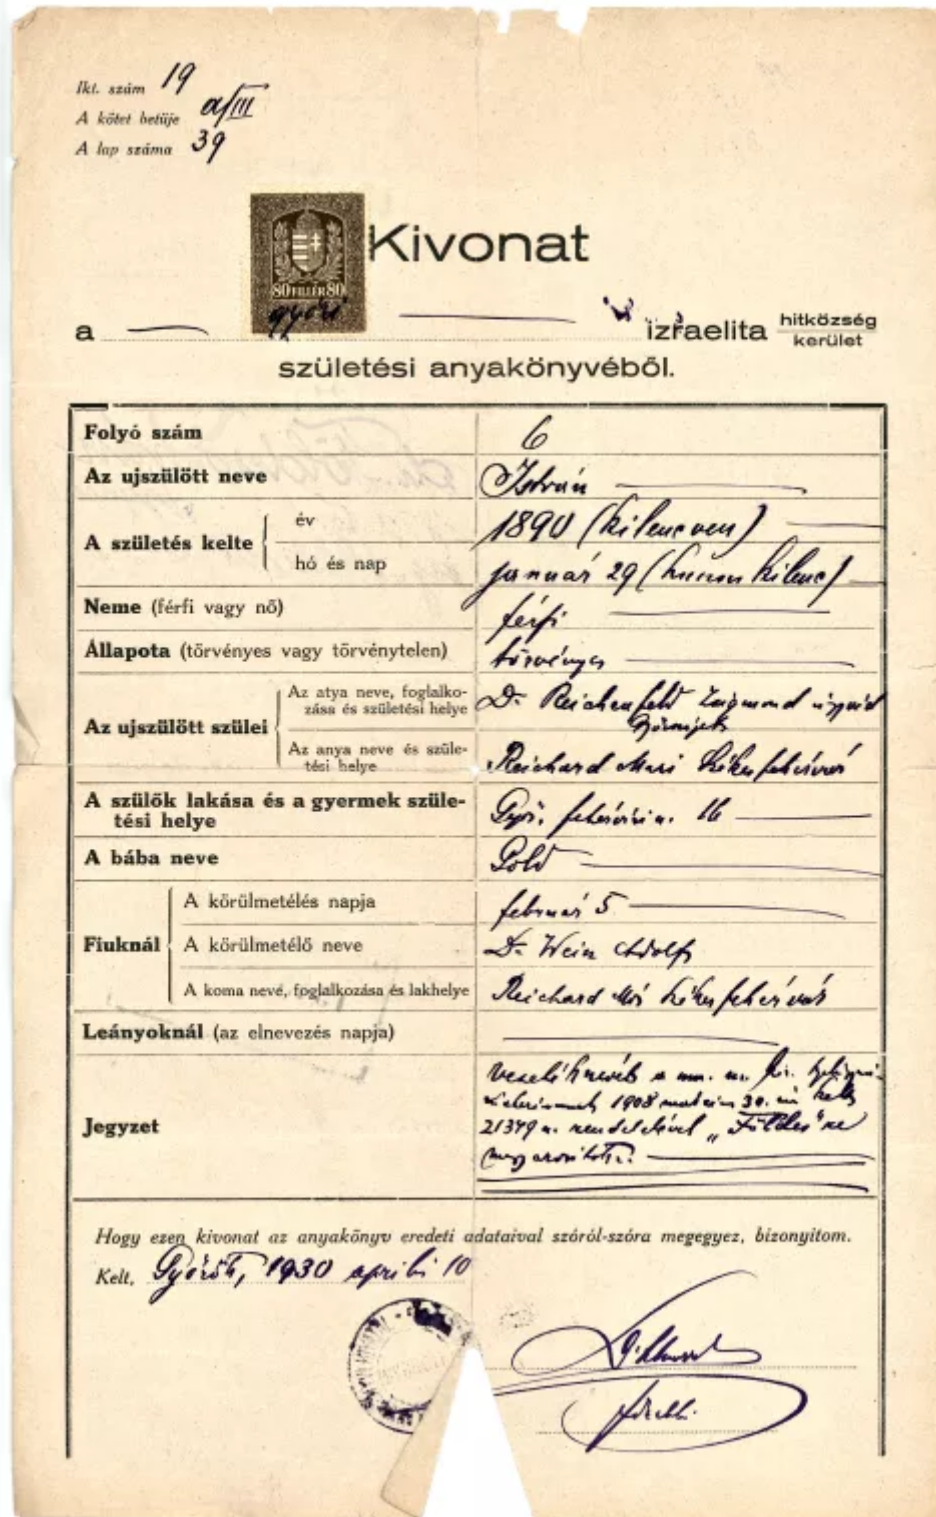 Ikt. szám 19
A kötet betüje a/III
A lap száma 39
Kivonat
80 FILLÉR 80
a győri izraelita hitközség
kerület
születési anyakönyvéből.
Folyó szám 6
Az ujszülött neve István
A születés kelte év 1890 (kilencven)
hó és nap január 29 (huszonkilenc)
Neme (férfi vagy nő) férfi
Állapota (törvényes vagy törvénytelen) törvényes
Az ujszülött szülei Az atya neve, foglalko-
zása és születési helye Dr. Reichenfeld Zsigmond ügyvéd
Az anya neve és szüle-
tési helye Reichard Mari Székesfehérvár
A szülők lakása és a gyermek szüle-
tési helye Győr, fehérvári u. 16
A bába neve Pold
Fiuknál A körülmetélés napja február 5
A körülmetélő neve Dr. Wein Adolf
A koma neve, foglalkozása és lakhelye Reichard Mór Székesfehérvár
Leányoknál (az elnevezés napja)
Jegyzet vezetéknevét a m. kir. belügymi-
niszteriumnak 1908 30. án kelt
21379 sz. rendeletével „Földes" re
magyarosította.
Hogy ezen kivonat az anyakönyv eredeti adataival szóról-szóra megegyez, bizonyitom.
Kelt, Győrött, 1930 április 10